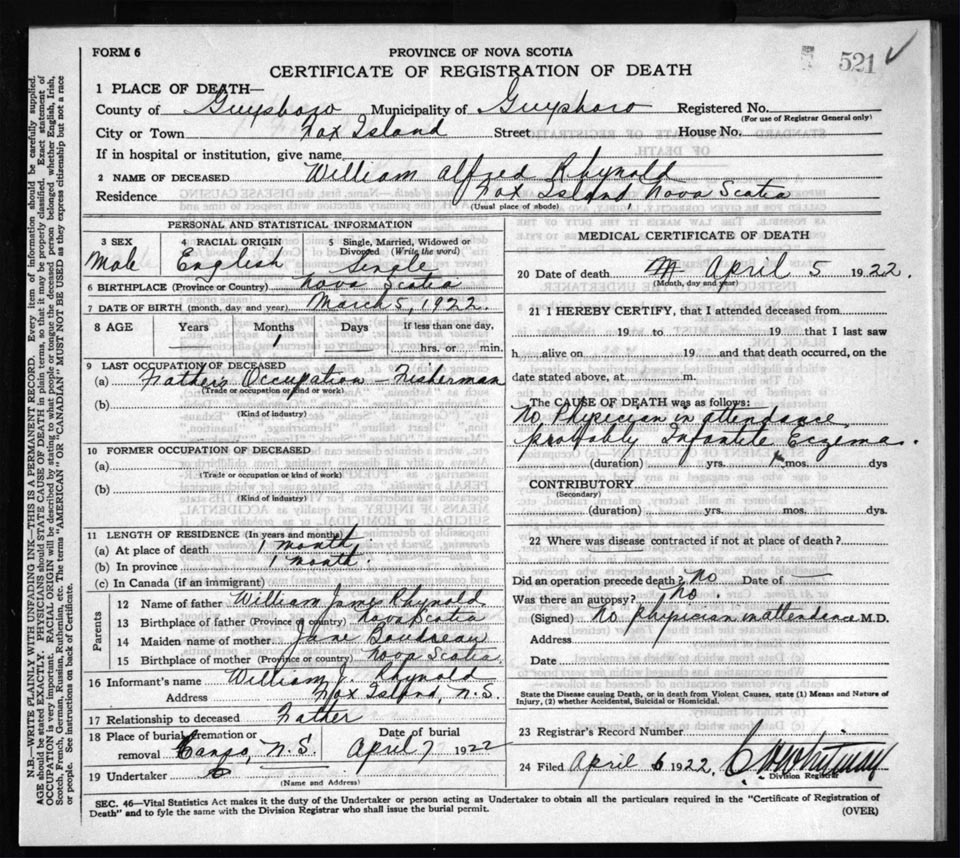 FORM 6
PROVINCE OF NOVA SCOTIA
521 ✓
CERTIFICATE OF REGISTRATION OF DEATH
1 PLACE OF DEATH—
County of Guysboro Municipality of Guysboro Registered No.
(For use of Registrar General only)
City or Town Fox Island Street House No.
If in hospital or institution, give name
2 NAME OF DECEASED William Alfred Rhynold
Residence Fox Island Nova Scotia
(Usual place of abode)
PERSONAL AND STATISTICAL INFORMATION
3 SEX 4 RACIAL ORIGIN 5 Single, Married, Widowed or Divorced (Write the word)
Male English Single
6 BIRTHPLACE (Province or Country) Nova Scotia
7 DATE OF BIRTH (month, day and year) March 5, 1922.
8 AGE Years Months Days If less than one day,
1 hrs. or min.
9 LAST OCCUPATION OF DECEASED
(a) Father's Occupation – Fisherman
(Trade or occupation or kind of work)
(b)
(Kind of industry)
10 FORMER OCCUPATION OF DECEASED
(a)
(Trade or occupation or kind of work)
(b)
(Kind of industry)
11 LENGTH OF RESIDENCE (In years and months)
(a) At place of death 1 month
(b) In province 1 month.
(c) In Canada (if an immigrant)
Parents
12 Name of father William James Rhynold
13 Birthplace of father (Province or country) Nova Scotia
14 Maiden name of mother Jane Boudreau
15 Birthplace of mother (Province or country) Nova Scotia.
16 Informant's name William J. Rhynold
Address Fox Island, N.S.
17 Relationship to deceased Father
18 Place of burial, cremation or removal Canso, N.S. Date of burial April 7 1922
19 Undertaker
(Name and Address)
MEDICAL CERTIFICATE OF DEATH
20 Date of death April 5 1922.
(Month, day and year)
21 I HEREBY CERTIFY, that I attended deceased from
19 to 19 that I last saw
h alive on 19 and that death occurred, on the
date stated above, at m.
The CAUSE OF DEATH was as follows:
No Physician in attendance
probably Infantile Eczema.
(duration) yrs. 1 mos. dys
CONTRIBUTORY
(Secondary)
(duration) yrs. mos. dys.
22 Where was disease contracted if not at place of death?
Did an operation precede death? No Date of —
Was there an autopsy? No.
(Signed) No physician in attendance M.D.
Address
Date
State the Disease causing Death, or in death from Violent Causes, state (1) Means and Nature of
Injury, (2) whether Accidental, Suicidal or Homicidal.
23 Registrar's Record Number
24 Filed April 6 1922, C W Whitman
Division Registrar
SEC. 46—Vital Statistics Act makes it the duty of the Undertaker or person acting as Undertaker to obtain all the particulars required in the "Certificate of Registration of
Death" and to fyle the same with the Division Registrar who shall issue the burial permit. (OVER)
N.B.—WRITE PLAINLY WITH UNFADING INK—THIS IS A PERMANENT RECORD. Every item of information should be carefully supplied.
AGE should be stated EXACTLY. PHYSICIANS should STATE CAUSE OF DEATH in plain terms, that it may be properly classified. Exact statement of
OCCUPATION is very important. RACIAL ORIGIN will be described by stating to what people or tongue the deceased person belonged whether English, Irish,
Scotch, French, German, Russian, Ruthenian, etc. The terms "AMERICAN" or "CANADIAN" MUST NOT BE USED as they express citizenship but not a race
or people. See instructions on back of Certificate.